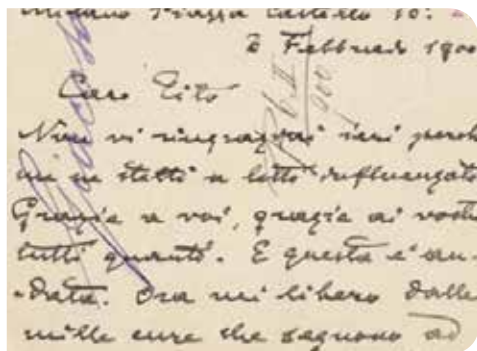 Milano Piazza Castello 16.
6 Febbraio 1900
Caro Tito
Non vi ringraziai ieri perchè
me ne stetti a letto influenzato
Grazie a voi, grazie ai vostri
tutti quanti. E questa è an-
-data. Ora mi libero dalle
mille cure che seguono ad